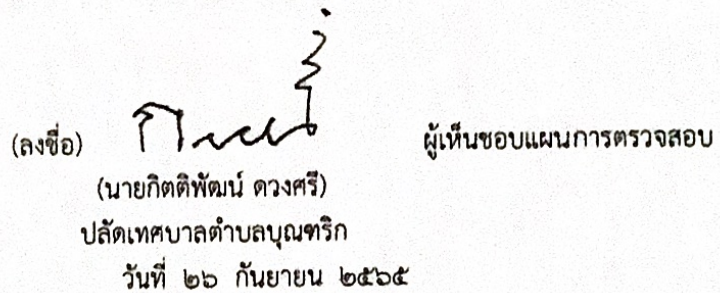 (ลงชื่อ) ผู้เห็นชอบแผนการตรวจสอบ
(นายกิตติพัฒน์ ดวงศรี)
ปลัดเทศบาลตำบลบุณฑริก
วันที่ ๒๖ กันยายน ๒๕๖๕